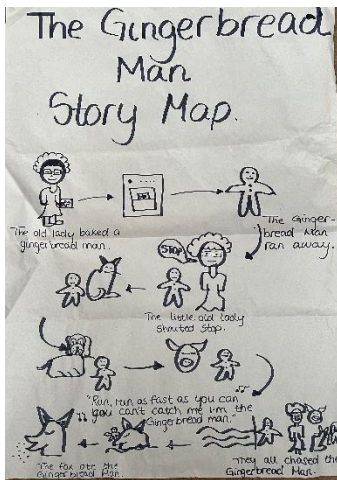 The Gingerbread
Man
Story Map.
The old lady baked a
gingerbread man.
The Ginger-
bread Man
ran away.
STOP
The little old lady
shouted stop.
"Run, run as fast as you can
you can't catch me i'm the
Gingerbread man."
They all chased the
Gingerbread Man.
The fox ate the
Gingerbread Man.